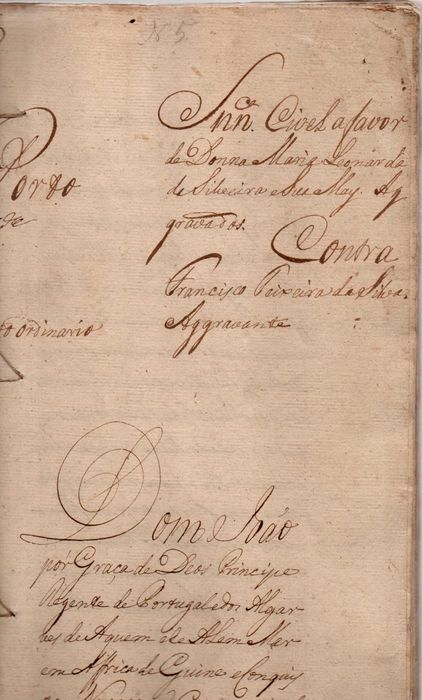 N 5
Porto
Snn.ª Civel a favor
de Donna Maria Leonarda
de Silveira e Sua May. Ag
gravados.
Contra
Francisco Teixeira da Silva.
Aggravante
ordinario
Dom João
por Graça de Deos Principe
Regente de Portugal e dos Algar
bes de Aquem e de Alem Mar
em Affrica de Guine e Conquis